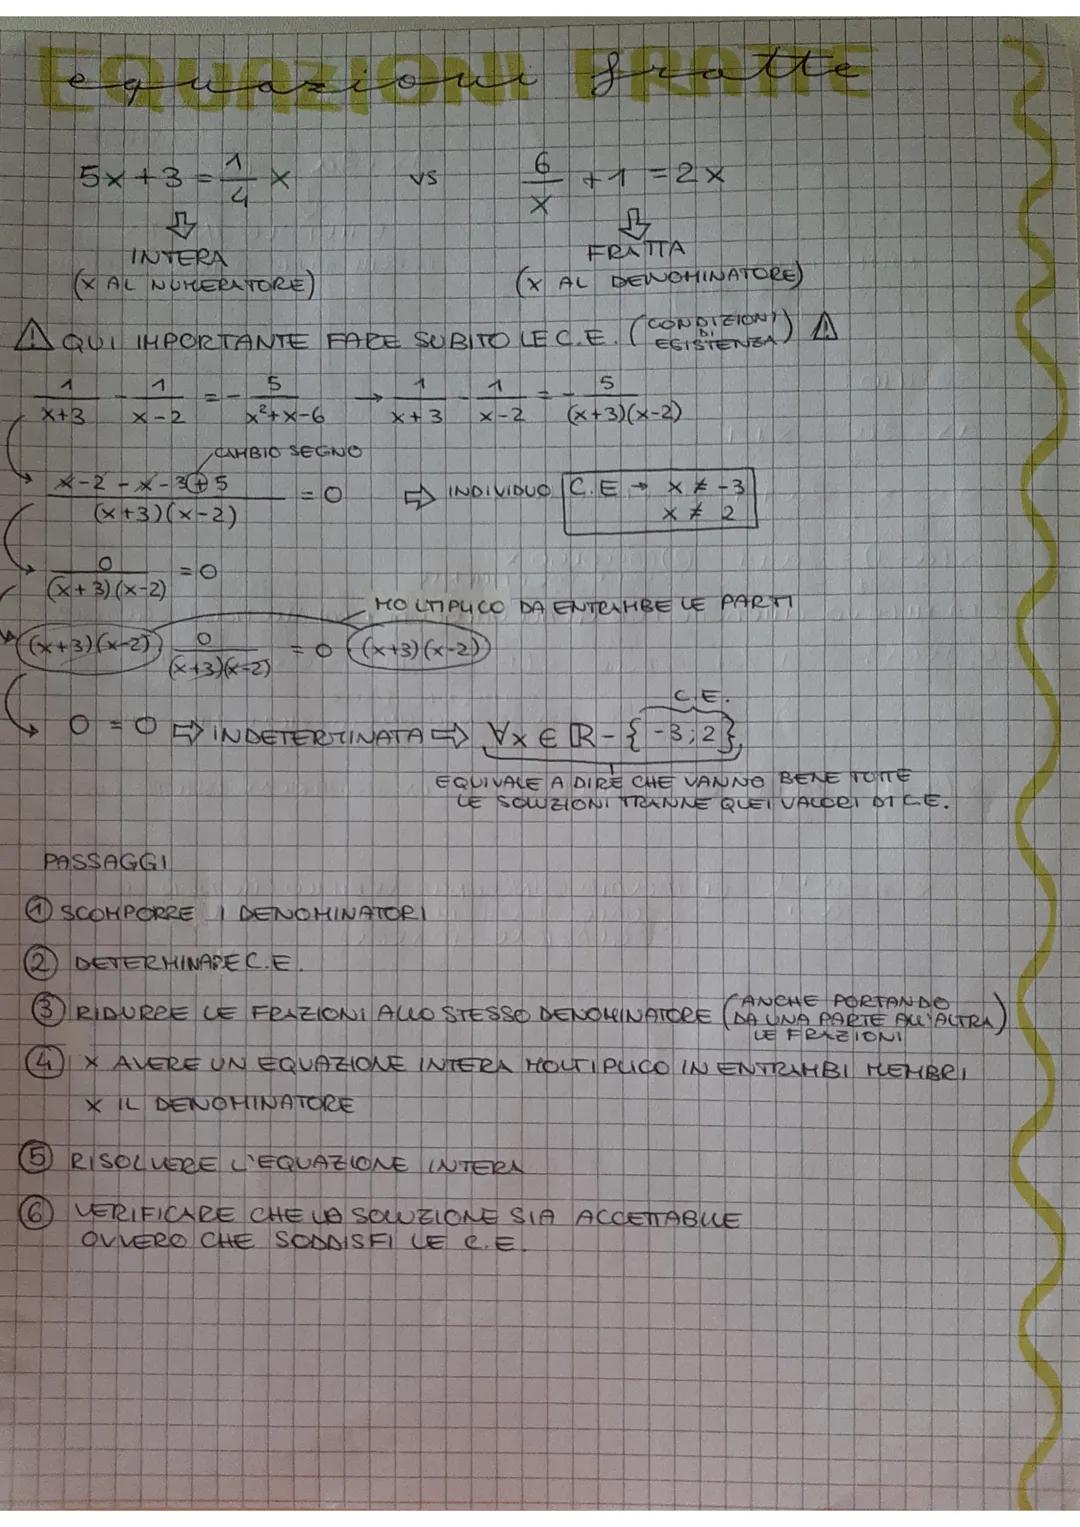 EQUAZIONI FRATTE
equazioni fratte
5x + 3 = 1/4 x vs 6/x + 1 = 2x
⇩ ⇩
INTERA FRATTA
(X AL NUMERATORE) (X AL DENOMINATORE)
⚠ QUI IMPORTANTE FARE SUBITO LE C.E. (CONDIZIONI DI ESISTENZA) ⚠
1/(x+3) - 1/(x-2) = - 5/(x²+x-6) → 1/(x+3) - 1/(x-2) = - 5/((x+3)(x-2))
CAMBIO SEGNO
(x-2-x-3+5)/((x+3)(x-2)) = 0 ⇨ INDIVIDUO C.E → x ≠ -3
x ≠ 2
0/((x+3)(x-2)) = 0
MOLTIPLICO DA ENTRAMBE LE PARTI
(x+3)(x-2) 0/((x+3)(x-2)) = 0 (x+3)(x-2)
C.E.
0 = 0 ⇨ INDETERMINATA ⇨ ∀x ∈ ℝ - {-3;2},
EQUIVALE A DIRE CHE VANNO BENE TUTTE
LE SOLUZIONI TRANNE QUEI VALORI DI C.E.
PASSAGGI
① SCOMPORRE I DENOMINATORI
② DETERMINARE C.E.
③ RIDURRE LE FRAZIONI ALLO STESSO DENOMINATORE (ANCHE PORTANDO DA UNA PARTE ALL'ALTRA LE FRAZIONI)
④ X AVERE UN EQUAZIONE INTERA MOLTIPLICO IN ENTRAMBI MEMBRI
X IL DENOMINATORE
⑤ RISOLVERE L'EQUAZIONE INTERA
⑥ VERIFICARE CHE LA SOLUZIONE SIA ACCETTABILE
OVVERO CHE SODDISFI LE C.E.